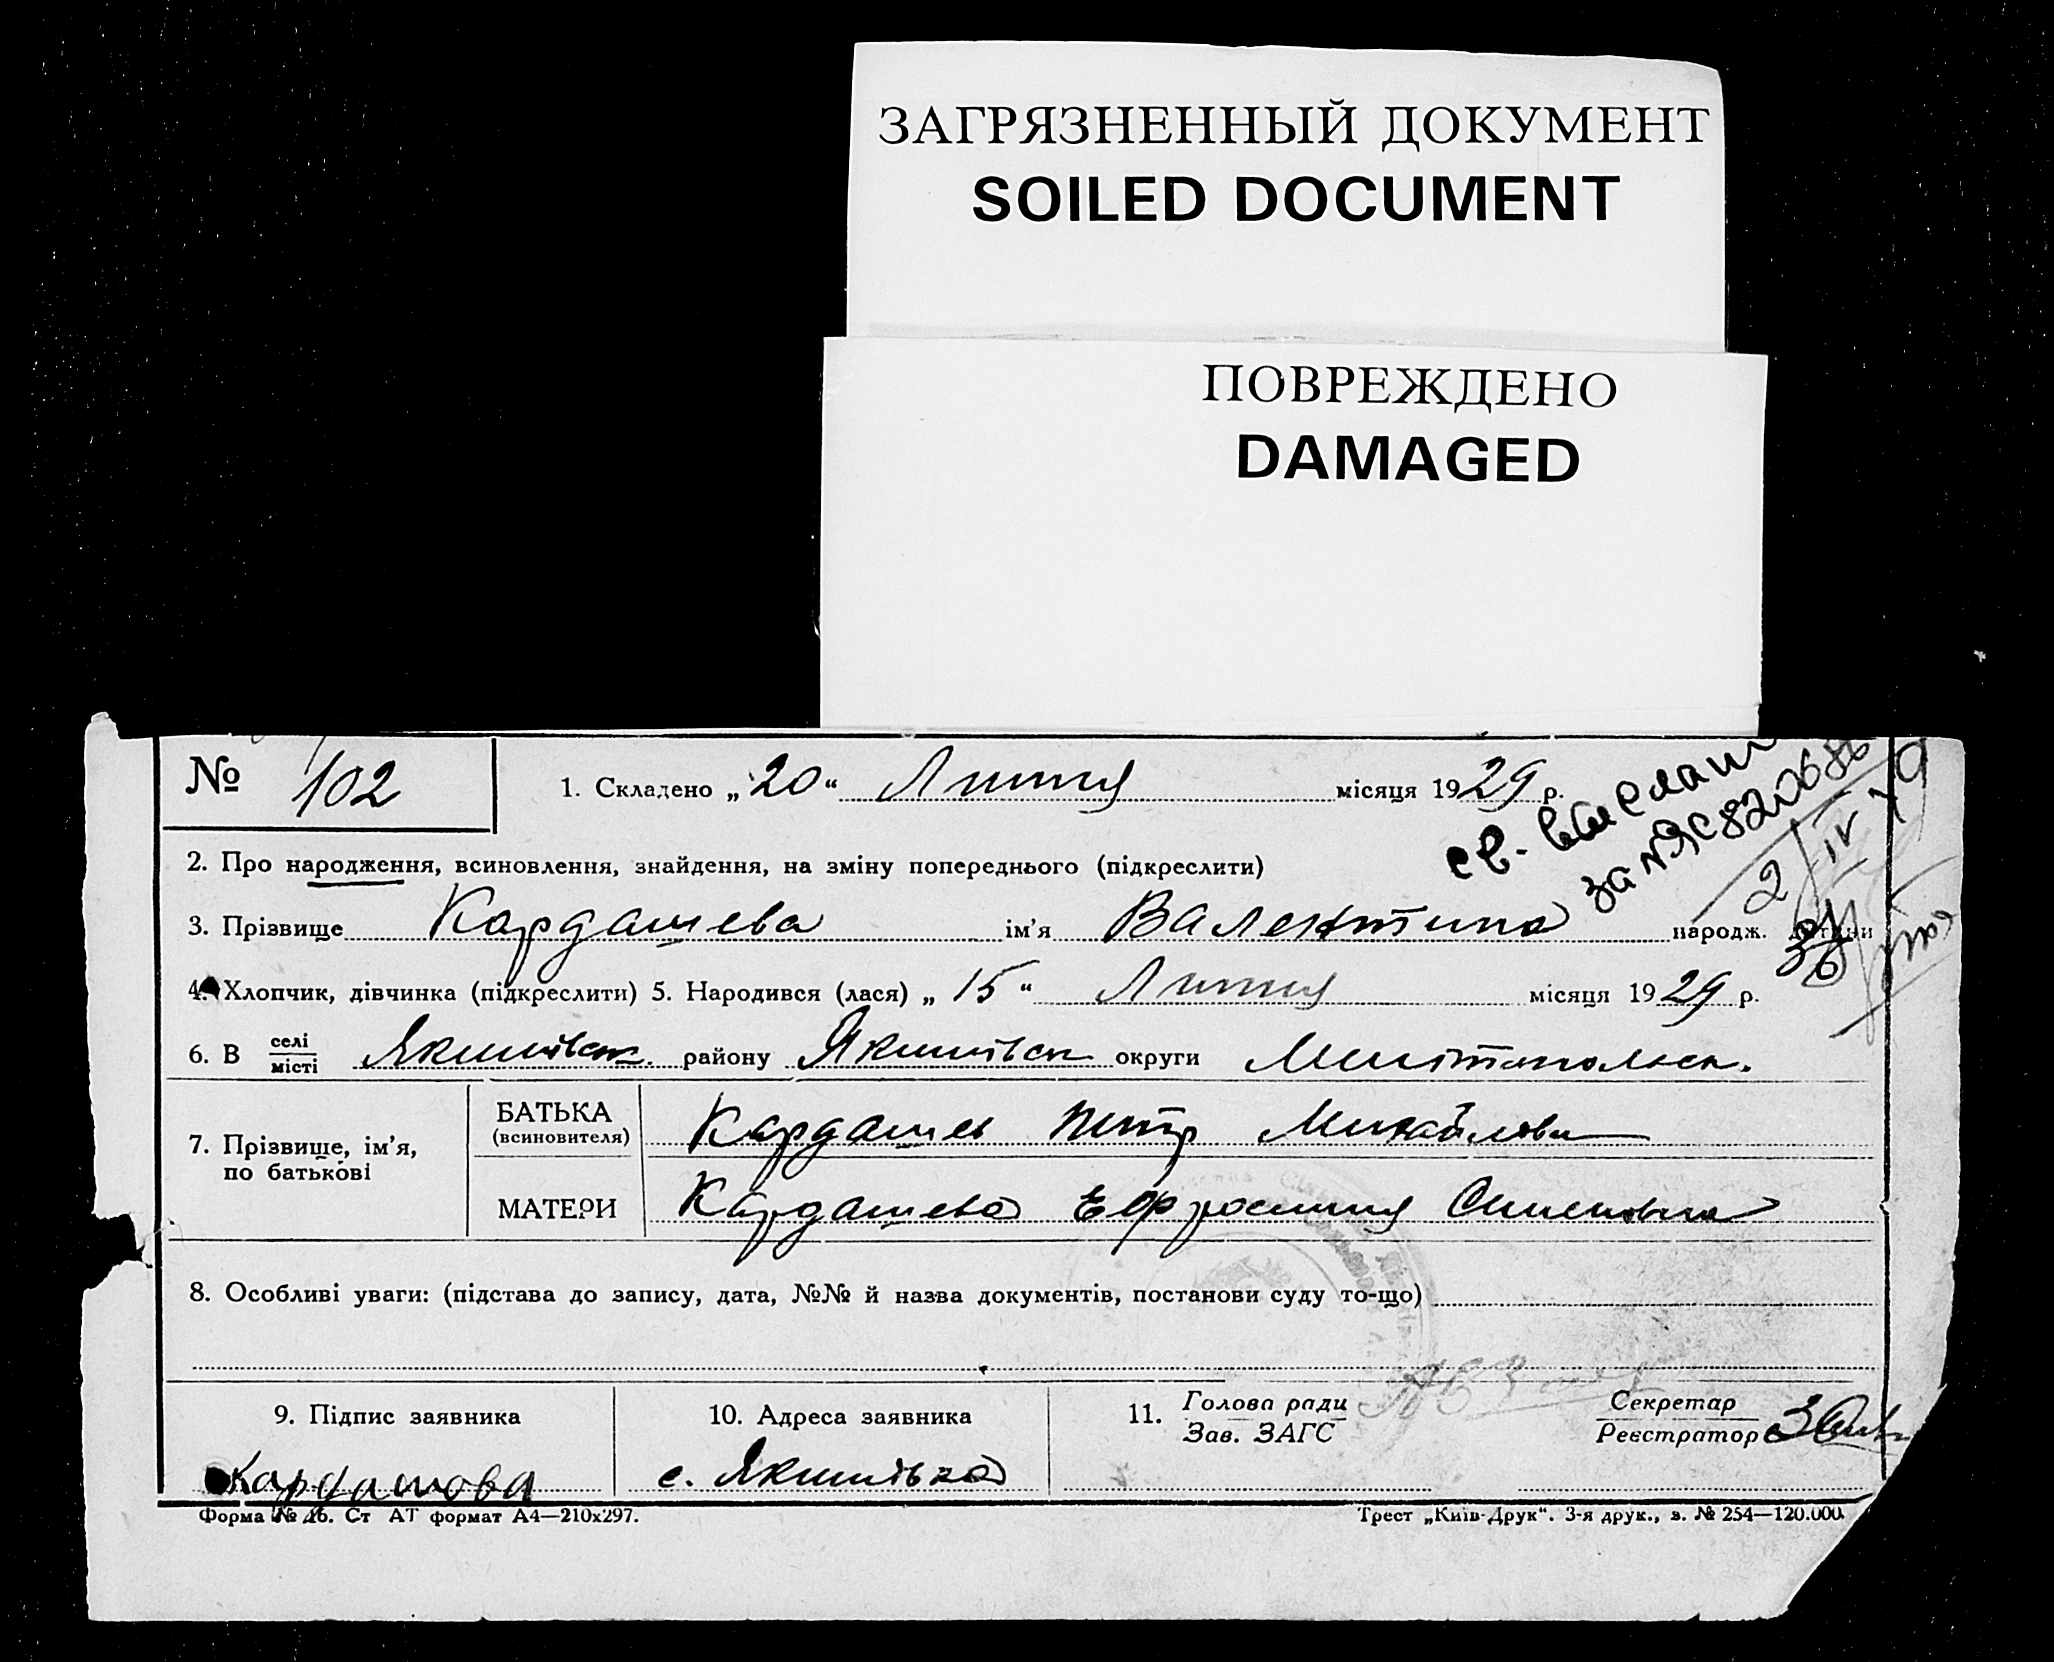 ЗАГРЯЗНЕННЫЙ ДОКУМЕНТ
SOILED DOCUMENT
ПОВРЕЖДЕНО
DAMAGED
№ 102
1. Складено „20“ Липня місяця 1929 р.
св. выслан
за № ЯС 820686
2. Про народження, всиновлення, знайдення, на зміну попереднього (підкреслити)
3. Прізвище Кардашева ім’я Валентина народж.
4. Хлопчик, дівчинка (підкреслити) 5. Народився (лася) „15“ Липня місяця 1929 р.
6. В селі місті Якимівськ. району Якимівськ округи Мелітопольськ.
7. Прізвище, ім’я, по батькові
БАТЬКА (всиновителя) Кардашев Петр
МАТЕРИ Кардашева Ефросиния Семеновна
8. Особливі уваги: (підстава до запису, дата, №№ й назва документів, постанови суду то-що)
9. Підпис заявника
Кардашова
10. Адреса заявника
с. Якимівка
11. Голова ради
Зав. ЗАГС
Секретар
Реєстратор
Форма № 16. Ст АТ формат А4—210х297.
Трест „Київ-Друк“. 3-я друк., з. № 254—120.000.